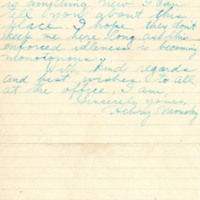 is anything new I can
tell you about this
place. I hope they don't
keep me here long as this
enforced idleness is becoming
monotonous.
With kind regards
and best wishes to all
at the office, I am,
Sincerely yours,